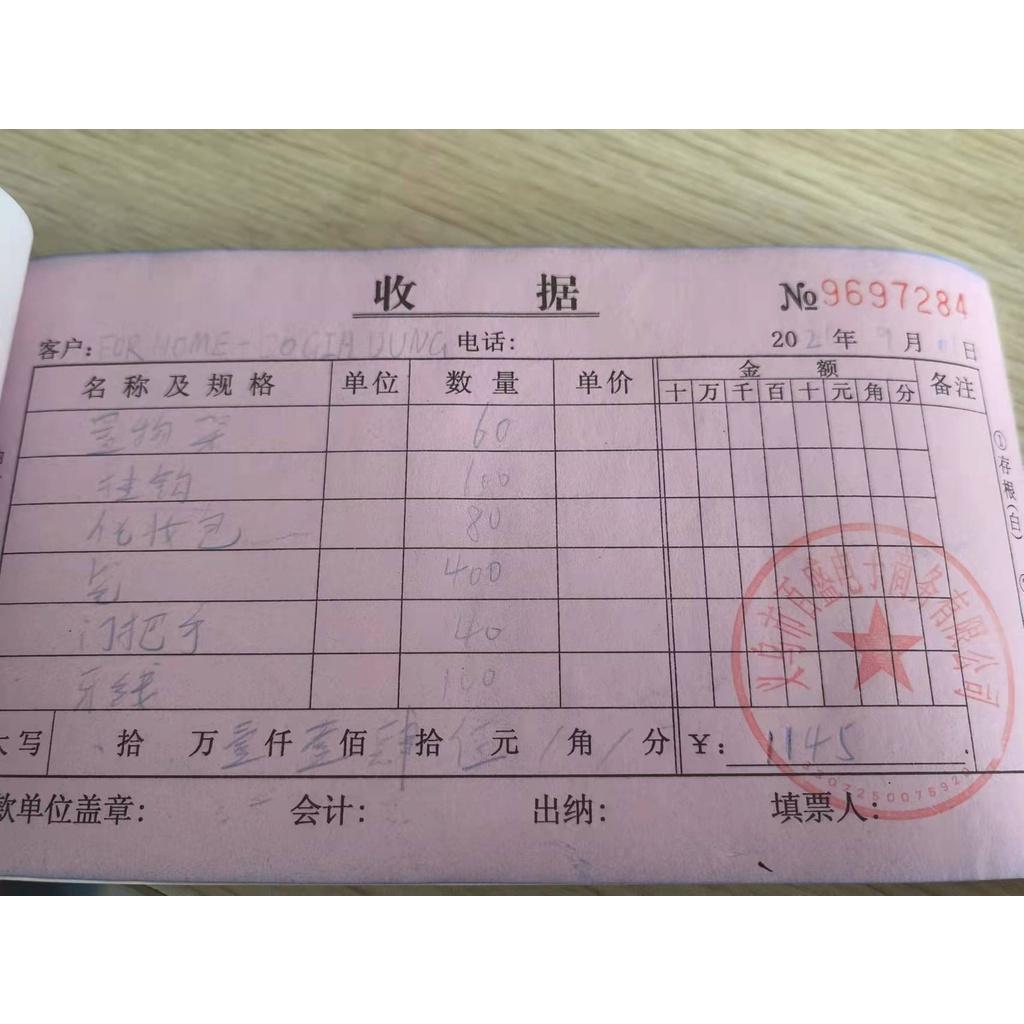 收 据
№9697284
客户: FOR HOME - DO GIA DUNG 电话: 2021年9月01日
名称及规格 单位 数量 单价 金额 备注
十 万 千 百 十 元 角 分
置物架 60
挂钩 100
化妆包 80
400
门把手 40
牙线 100
大写 拾 万 壹 仟 壹 佰 肆 拾 伍 元 / 角 / 分 ¥: 1145
款单位盖章: 会计: 出纳: 填票人:
①存根(白)
义乌市百盛电子商务有限公司